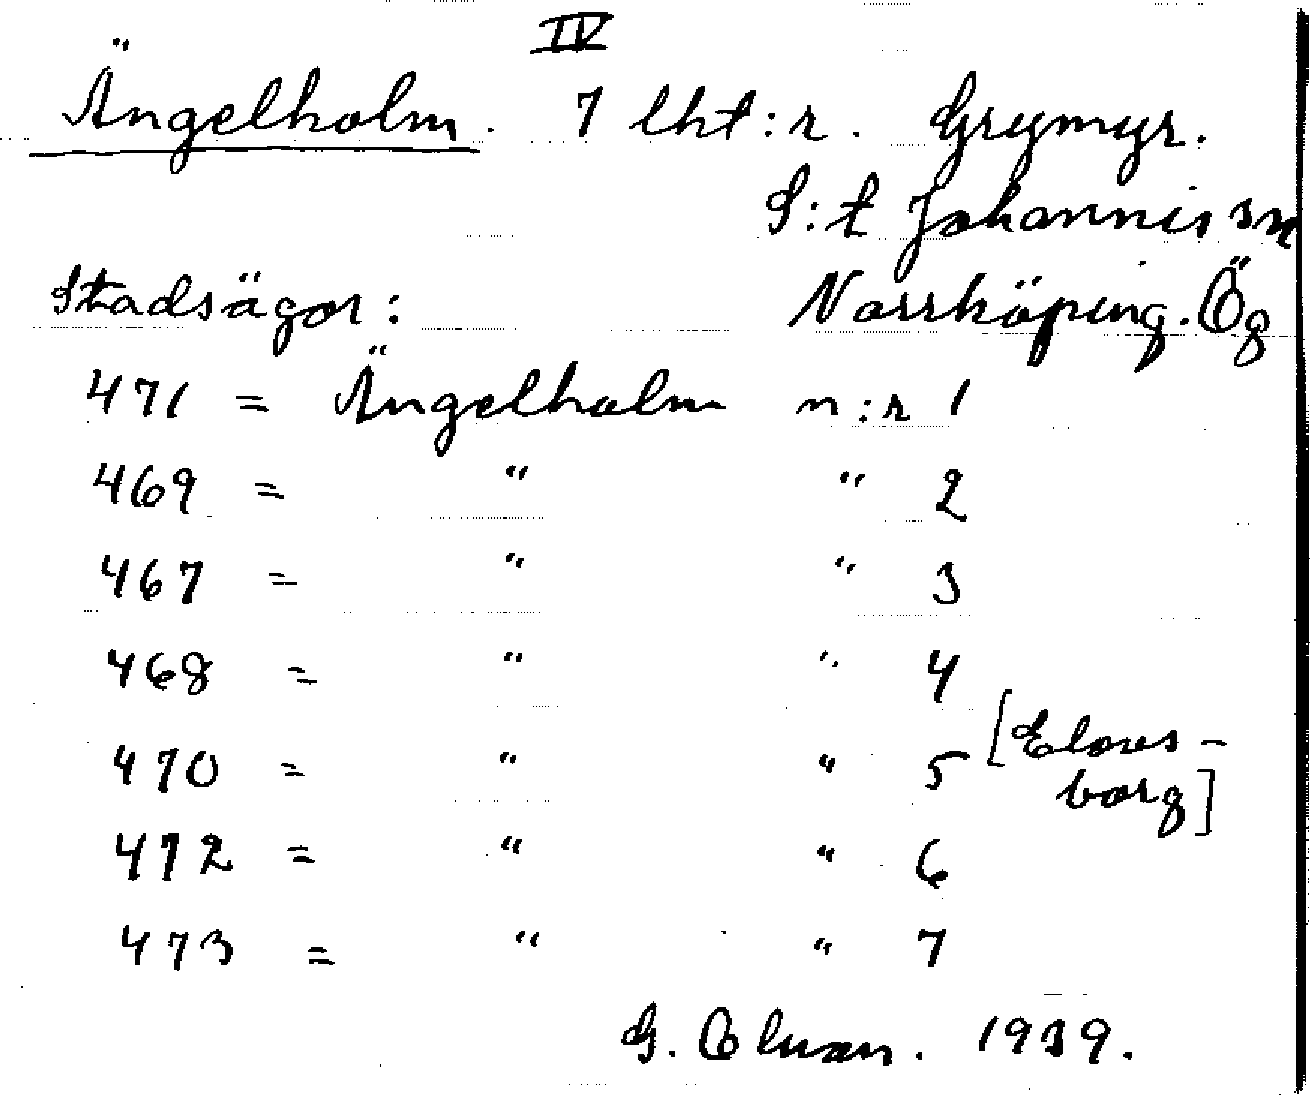 IV
Ängelholm. 7 lht:r. Grymyr.
S:t Johannis sn
Stadsägor: Norrköping. Ög
471 = Ängelholm n:r 1
469 = " " 2
467 = " " 3
468 = " " 4
470 = " " 5 [Elores-
borg]
472 = " " 6
473 = " " 7
G. 1939.